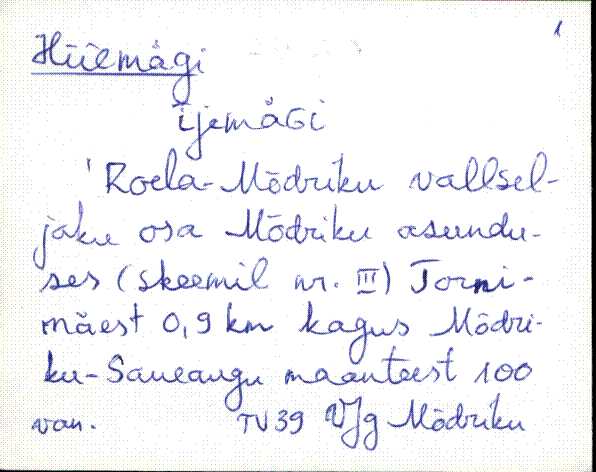 1
Hiiemägi
ijemäGi
'Roela-Mõdriku vallsel-
jaku osa Mõdriku asundu-
ses (skeemil nr. III) Torni-
mäest 0,9 km kagus Mõdri-
ku-Saueaugu maanteest 100
van. TV 39 VJg Mõdriku